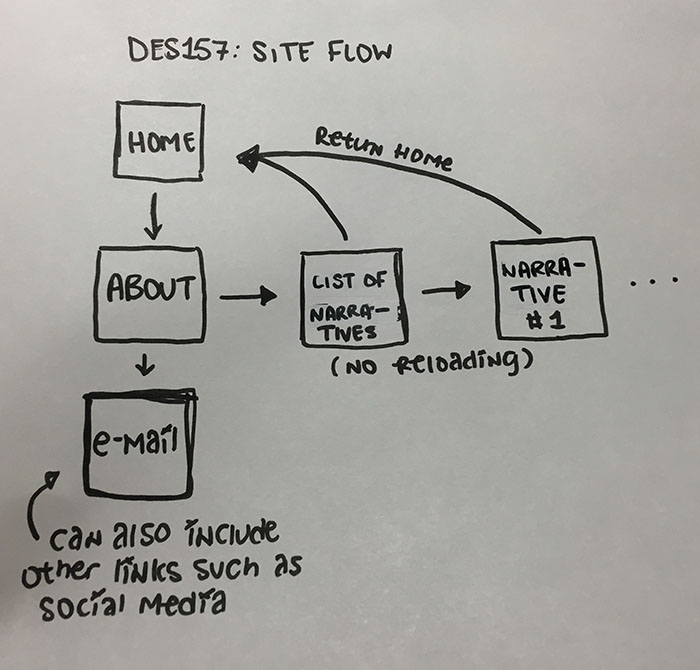 DES157: SITE FLOW
HOME
Retun HOME
ABOUT
LIST OF
NARRA-
TIVES
NARRA-
TIVE
#1
...
(NO reloading)
e-mail
can also include
other links such as
social media